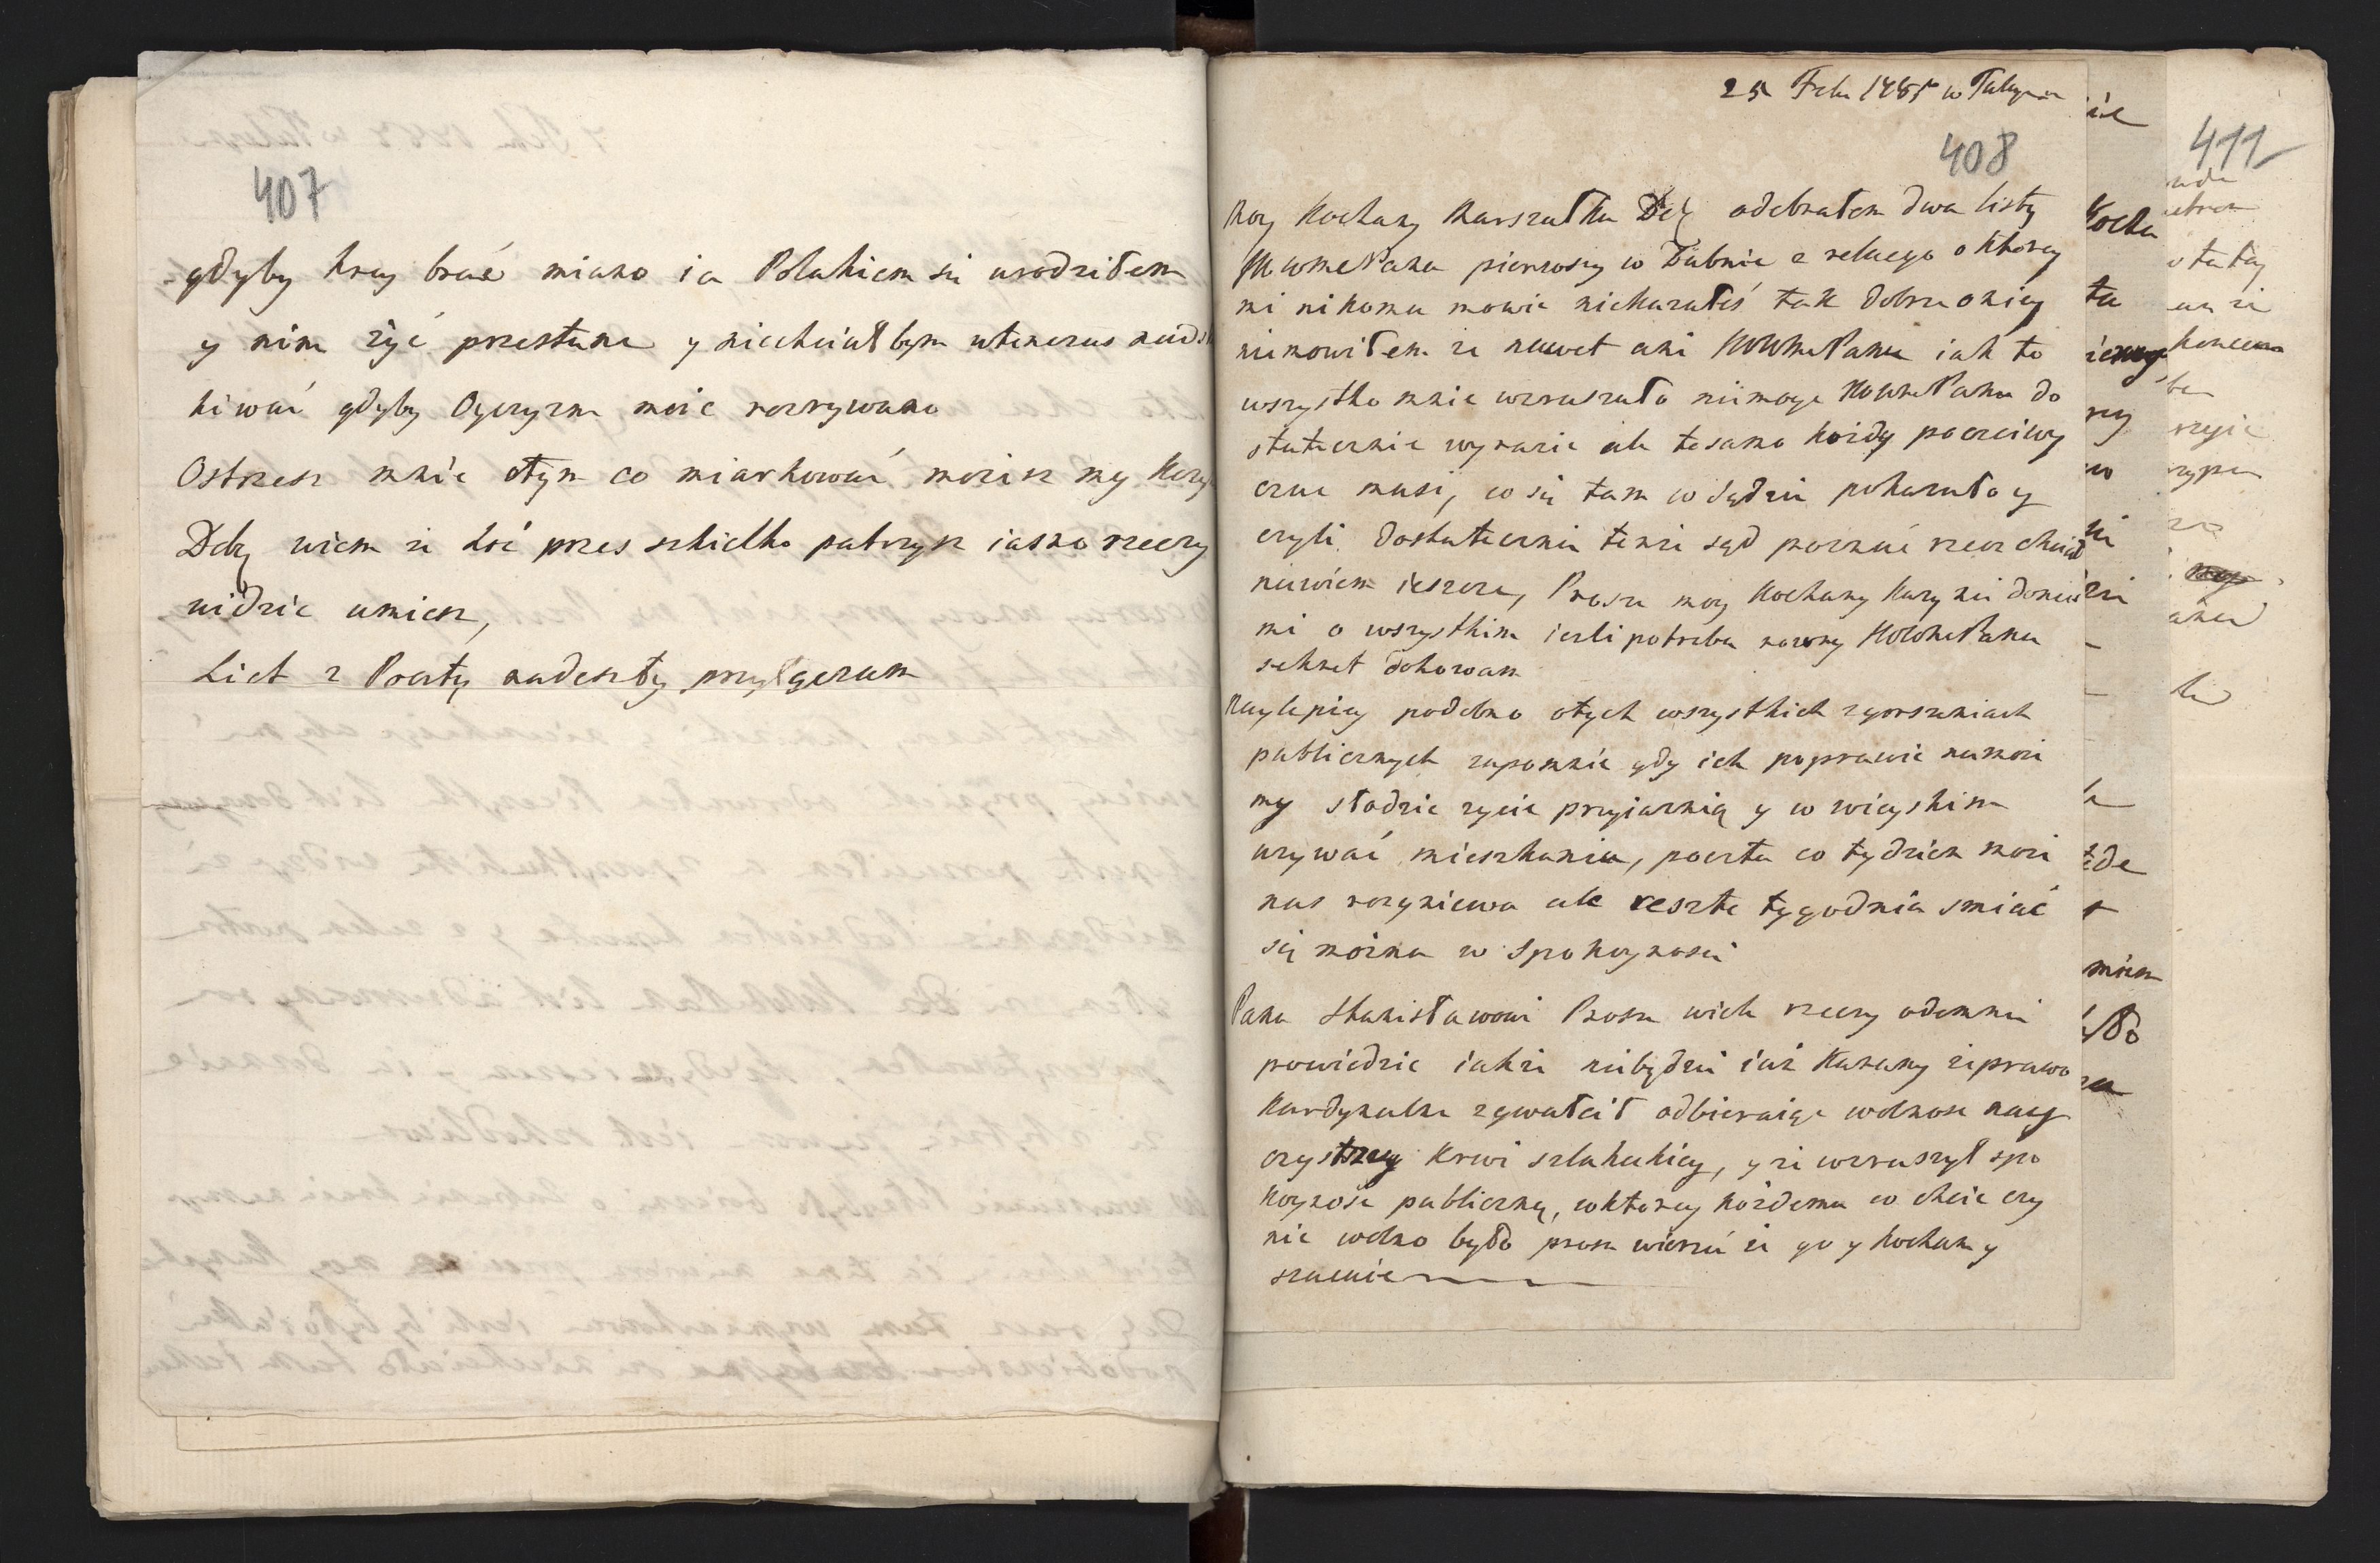 407
gdyby kray brać miano ia Polakiem się urodziłem
y nim żyć przestane y niechciałbym wtenczas
kiwać gdyby Oyczyzne moię rozrywano
Ostrzesz mnie otym co miarkować możesz my
Deby wiem ze choć przes szkiełko patrzysz iasno rzeczy
widzic umiesz,
List z Poczty nadeszły przyłączam
25 Feb 1785 w Tulczynie
408
Moy Kochany Marszałku Deb odebrałem dwa listy
WWMePana pierwoszy w Dubnie z ktorey
mi nikomu mowic niekazałeś tak dobrze oniey
niemowiłem ze nawet ani WWMePanu iak to
wszystko mnie wzruszało niemogę WWMePanu do
statecznie wyrazic ale tosamo każdy poczciwy
czuc musi, co się tam w Sądzie pokazało y
czyli doskatecznie tenze sąd poznać rzecz chciał
niewiem ieszcze, Prosze moy Kochany donieś
mi o wszystkim iezli potrzeba WWMePanu
sekret dochowam
Naylepiey podobno otych wszystkich zgorszeniach
publicznych zapomnic gdy ich poprawic niemoze
my słodzic zycie przyiaznią y w wieyskim
uzywać mieszkaniu, poczta co tydzien moze
nas rozgniewa ale reszte tygodnia smiać
się można w spokoynosci
Panu Stanisławowi Prosze wiele rzeczy odemnie
powiedzic iakze niebędzie iuż Karany ze prawo
Kardynalne zgwałcił odbieraiąc wolnosc nay
czystszey Krwi szlacheckiey, y ze wzruszył spo
koynosc publiczną, wktorey każdemu co chcic czy
nic wolno było prosze wierzić ze go y kocham y
szacuie
411